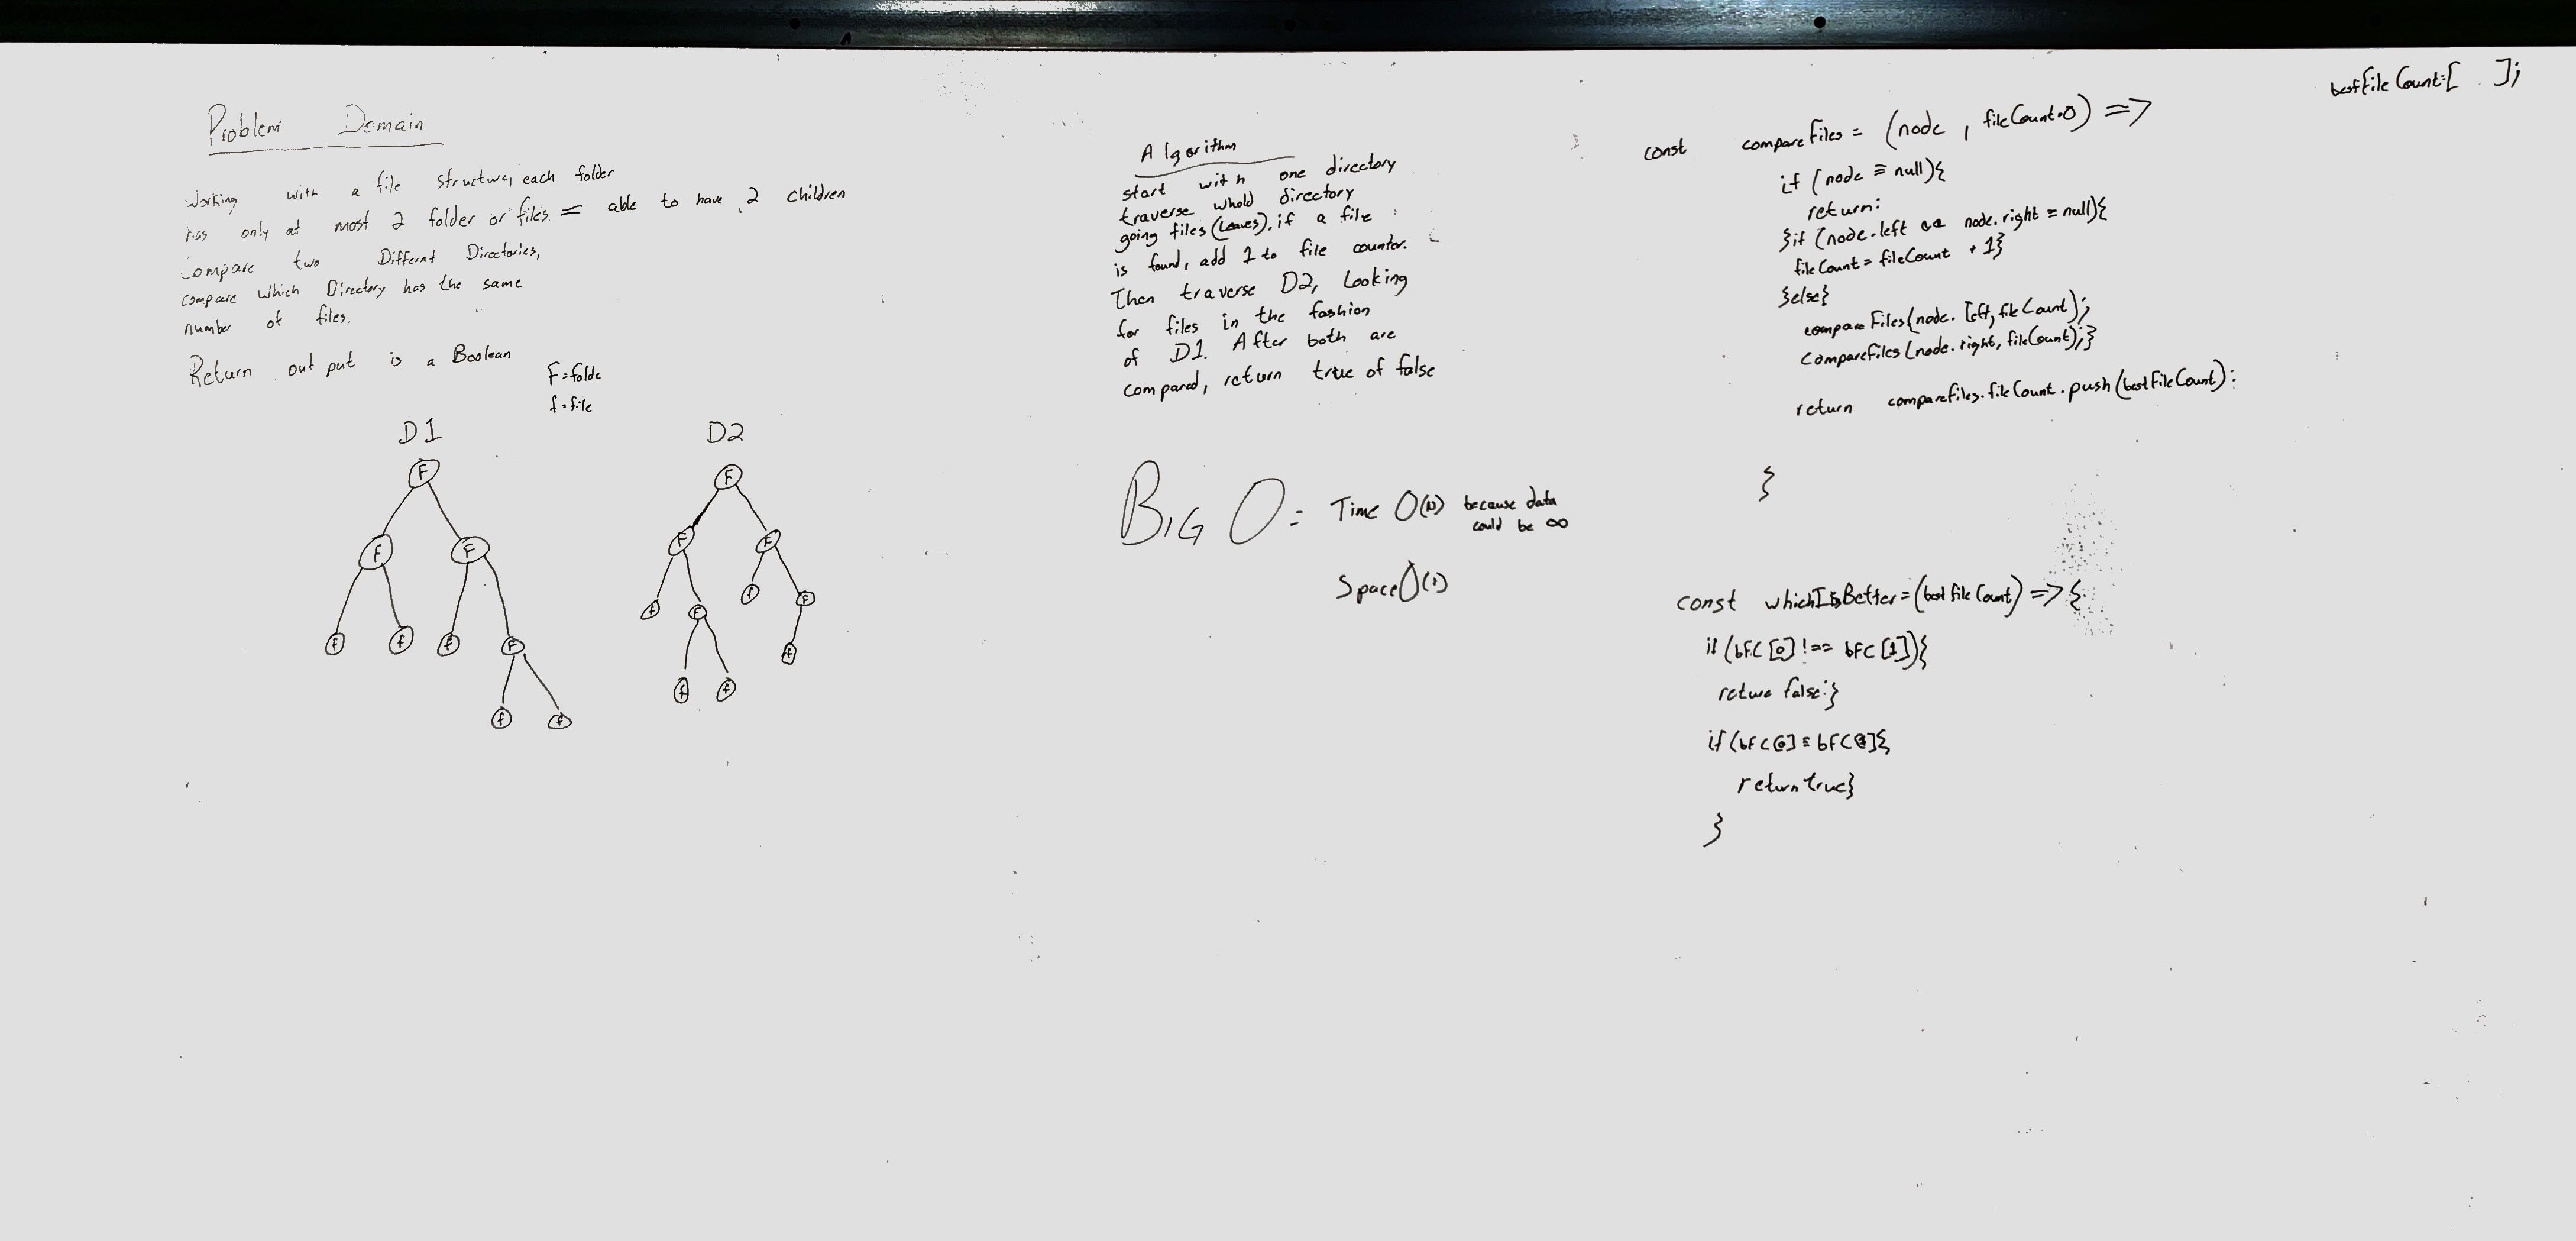 Problem Domain
Working with a file structure, each folder
has only at most 2 folder or files = able to have 2 children
Compare two Differnt Directories,
compare which Directory has the same
number of files.
Return out put is a Boolean
F=folde
f=file
D1
D2
F
F
F
F
F
F
f
f
F
f
f
f
f
F
F
f
f
f
f
f
f
Algorithm
start with one directory
traverse whold directory
going files (leaves), if a file
is found, add 1 to file counter.
Then traverse D2, Looking
for files in the fashion
of D1. After both are
compared, return true of false
BIG O = Time O(N) because data
could be ∞
Space O(1)
bestFileCount=[ ];
const compareFiles = (node, fileCount=0) =>
if (node = null){
return;
}if (node.left && node.right = null){
fileCount = fileCount + 1}
}else}
compareFiles(node.left, fileCount);
compareFiles(node.right, fileCount);}
return compareFiles.fileCount.push(bestFileCount);
}
const whichIsBetter = (bestfileCount) => {
if (bFC[0] !== bFC[1]){
return false;}
if (bFC[0] = bFC[1]{
return true}
}